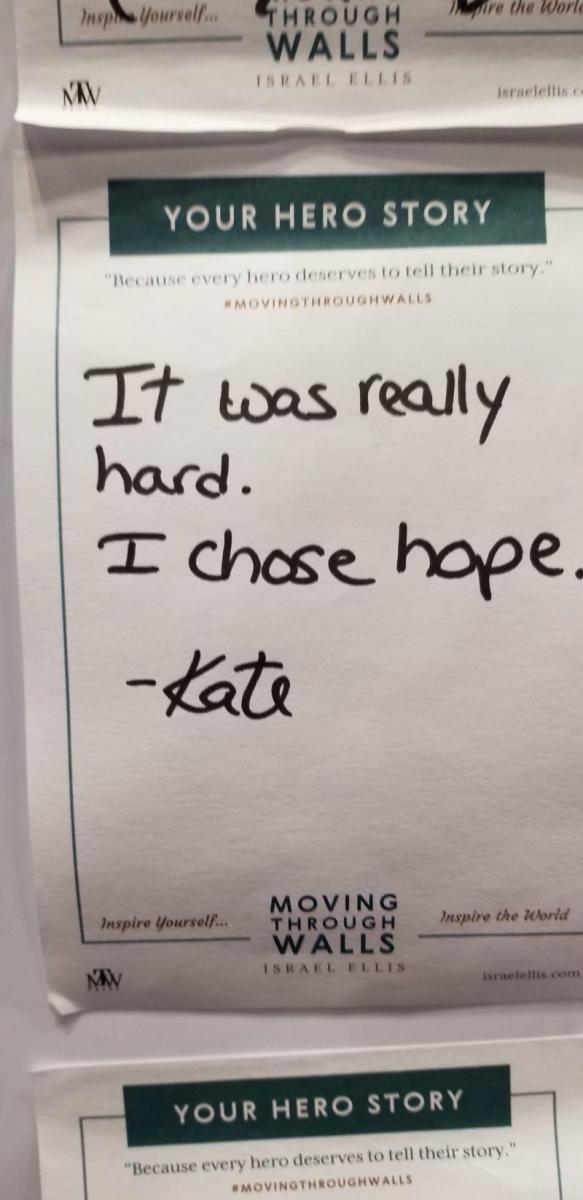 Inspire Yourself...
THROUGH
WALLS
ISRAEL ELLIS
the
MTW
israelellis
YOUR HERO STORY
"Because every hero deserves to tell their story."
#MOVINGTHROUGHWALLS
It was really
hard.
I chose hope.
-Kate
Inspire Yourself...
MOVING
THROUGH
WALLS
ISRAEL ELLIS
Inspire the World
MTW
israelellis.com
YOUR HERO STORY
"Because every hero deserves to tell their story."
#MOVINGTHROUGHWALLS